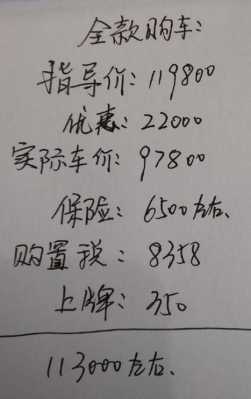 全款购车:
指导价: 119800
优惠: 22000
实际车价: 97800
保险: 6500左右、
购置税: 8358
上牌: 350
113000左右、